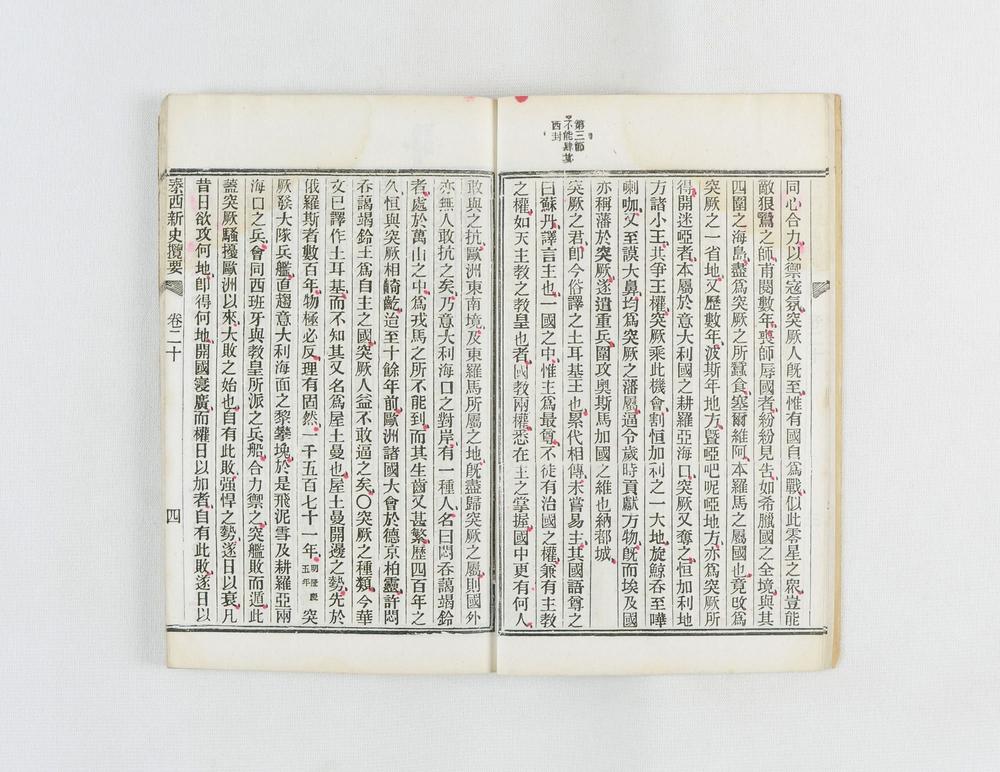 第三節
不能肆其
西封
同心合力以禦寇氛突厥人旣至惟有國自爲戰似此零星之衆豈能
敵狠鷙之師甫閱數年喪師辱國者紛紛見吿如希臘國之全境與其
四圍之海島盡爲突厥之所蠶食塞爾維阿本羅馬之屬國也竟改爲
突厥之一省地又歷數年波斯年地方曁啞吧呢啞地方亦爲突厥所
得開迷啞者本屬於意大利國之耕羅亞海口突厥又奪之恒加利地
方諸小王共爭王權突厥乘此機會割恒加利之一大地旋鯨吞至嗶
喇咖又至謨大鼻均爲突厥之藩屬逼令歲時貢獻方物旣而埃及國
亦稱藩於突厥遂遣重兵圍攻奧斯馬加國之維也納都城
突厥之君卽今俗譯之土耳基王也累代相傳未嘗易主其國語尊之
曰蘇丹譯言主也一國之中惟主爲最尊不徒有治國之權兼有主教
之權如天主教之教皇也者國教兩權悉在主之掌握國中更有何人
敢與之抗歐洲東南境及東羅馬所屬之地旣盡歸突厥之屬則國外
亦無人敢抗之矣乃意大利海口之對岸有一種人名曰悶吞謁竭鈴
者處於萬山之中爲戎馬之所不能到而其生齒又甚繁歷四百年之
久恒與突厥相齮齕迨至十餘年前歐洲諸國大會於德京柏靈許悶
吞謁竭鈴王爲自主之國突厥人益不敢逼之矣○突厥之種類今華
文已譯作土耳基而不知其又名爲屋土曼也屋土曼開邊之勢先於
俄羅斯者數百年物極必反理有固然一千五百七十一年明隆慶五年突
厥發大隊兵艦直趨意大利海面之黎攀堍於是飛泥雪及耕羅亞兩
海口之兵會同西班牙與教皇所派之兵船合力禦之突艦敗而遁此
蓋突厥騷擾歐洲以來大敗之始也自有此敗强悍之勢遂日以衰凡
昔日欲攻何地卽得何地開國寖廣而權日以加者自有此敗遂日以
泰西新史攬要 卷二十 四